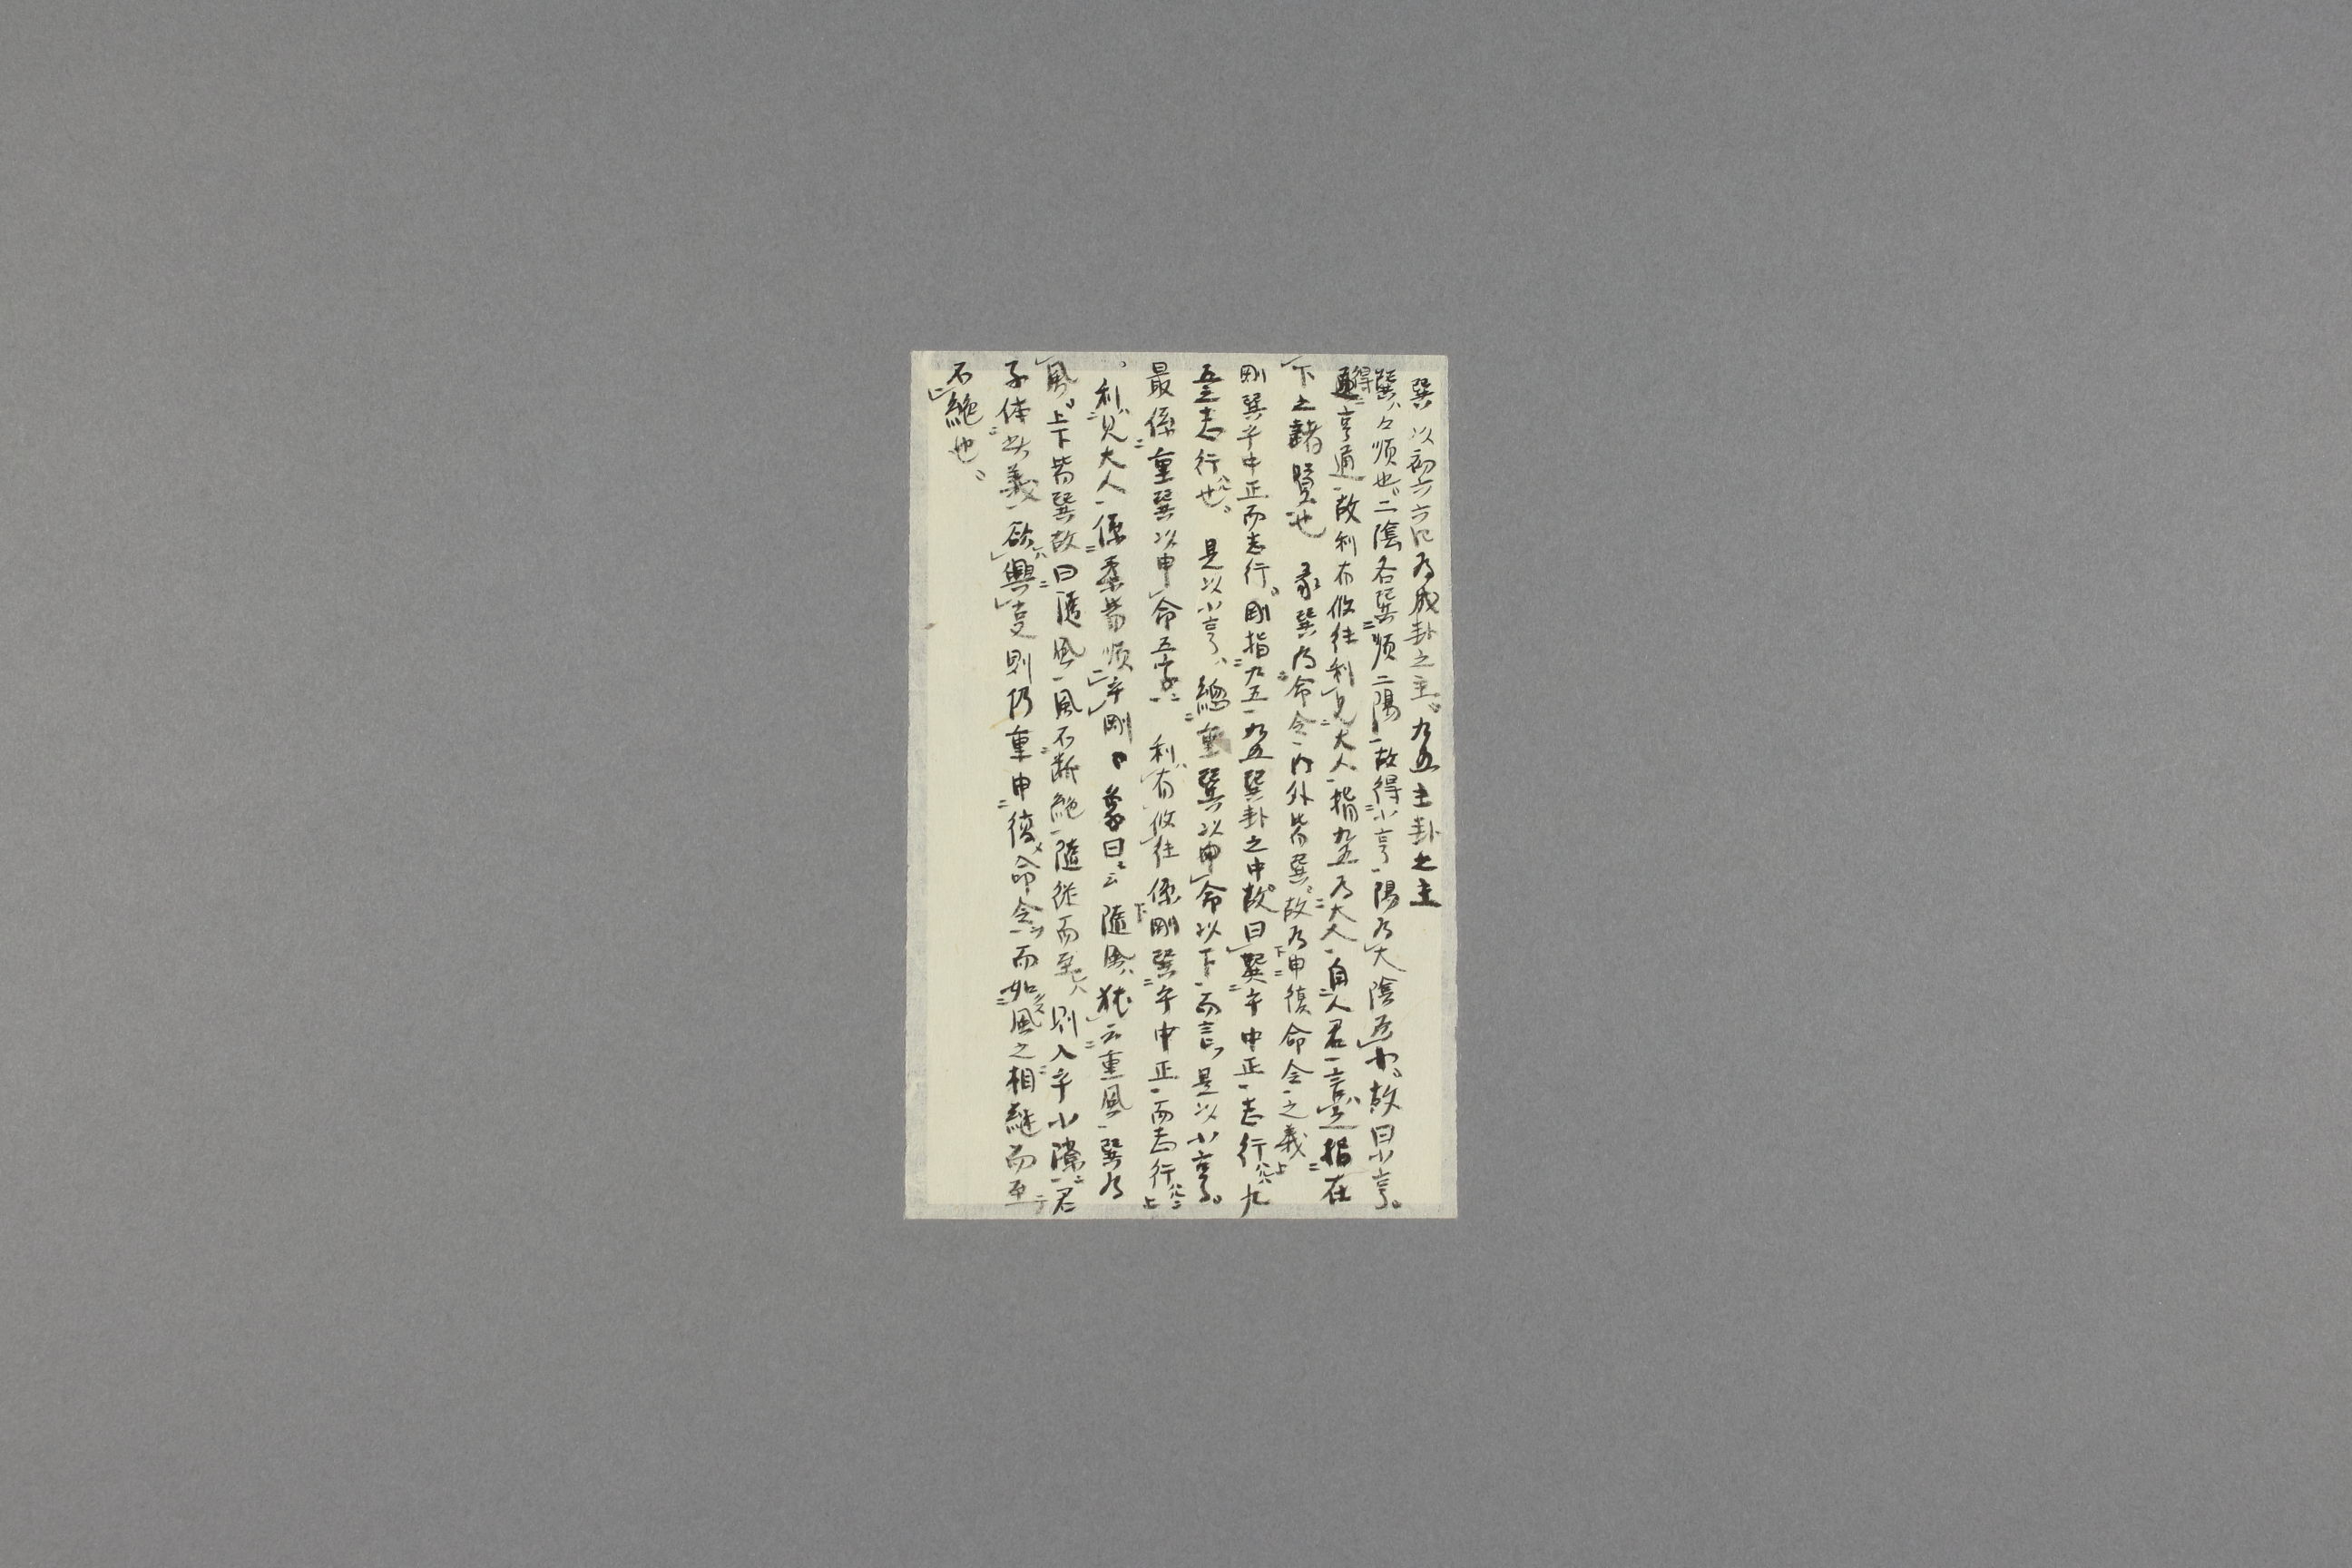 巽 以初六六四為成卦之主。九五主卦之主
巽、々順也。二陰各巽順二陽故得小亨陽為大陰為小。故曰小亨。
得亨通故利有攸往利見大人指九五為大人自人君言之指在
下之諸賢也 彖巽為命令内外皆巽、故為申復命令之義
剛巽乎中正而志行。剛指九五九五巽卦之中故曰巽乎中正志行九
五之志行也。 是以小亨、總重巽以申命以下而言是以小亨。
最係重巽以申命五字 利有攸往係剛巽乎中正而志行
利見大人係柔皆順乎剛 象曰云隨風、猶云重風巽為
風。上下皆巽故曰隨風風不断絶隨從而至則入乎小隙君
子体此義欲興事則仍重申復命令而如風之相継而至
不絶也、